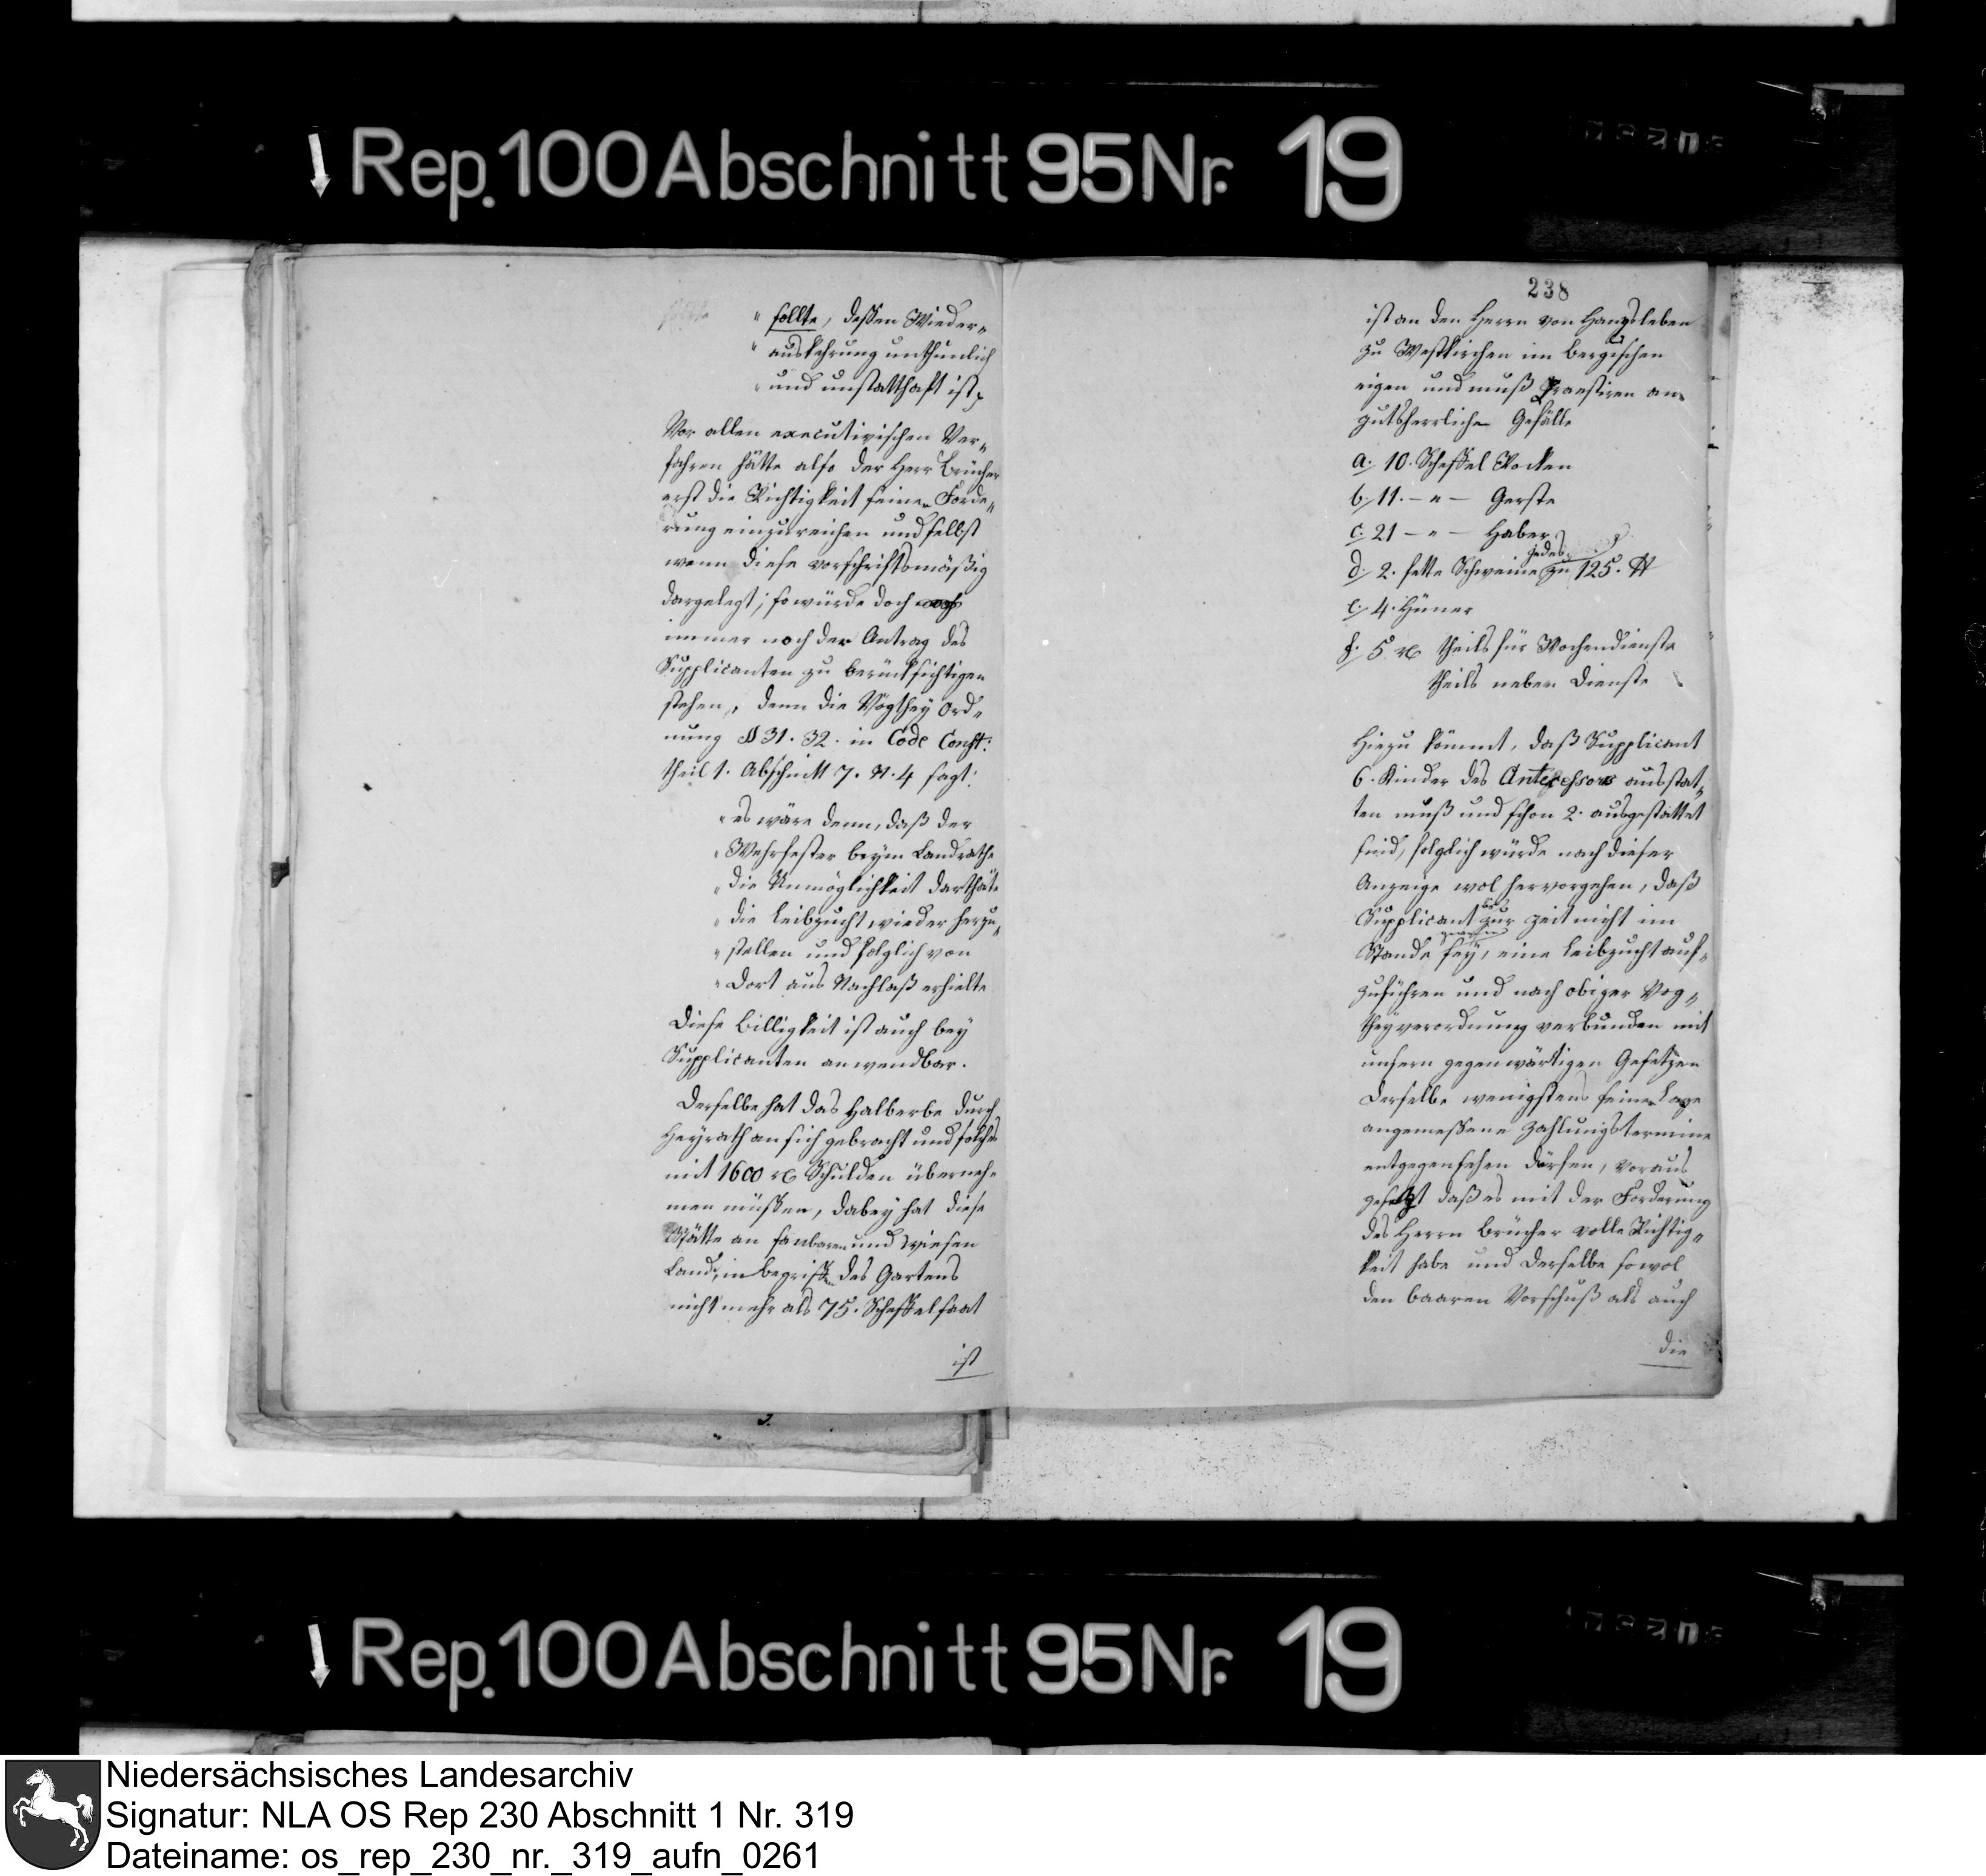 ↓ Rep. 100 Abschnitt 95 Nr. 19
" sollte, deßen Wieder„
" auskehrung unthunlich
" und unstatthaft ist
Vor allen executivischen Ver„
fahren hätte also der Herr Brücher
erst die Richtigkeit seiner Forde„
rung einzureichen und selbst
wenn diese vorschriftsmäßig
dargelegt; so würde doch
immer noch der Antrag des
Supplicanten zu berücksichtigen
stehen, denn die Vogthey Ord„
nung § 31. 32. in Code Const:
theil 1. Abschnitt 7. N. 4 sagt:
" es wäre denn, daß der
" Wehrfester beym Landrathe
" die Unmöglichkeit darthäte
" die Leibzucht wieder herzu„
" stellen und folglich von
" Dort aus Nachlaß erhielte
Diese Billigkeit ist auch bey
Supplicanten anwendbar.
Derselbe hat das Halberbe durch
Heyrath an sich gebracht und solches
mit 1600 rt Schulden überneh„
men müßen, dabey hat diese
Stätte an saabaren und Wiesen
Land, in begriff des Gartens
nicht mehr als 75. Scheffelsaat
ist
238
ist an den Herrn von Hanxleben
zu Westkirchen im Bergischen
eigen und muß Praestiren an
gutsherrliche Gefälle
a. 10. Scheffel Rocken
b. 11. – " – Gerste
c. 21 – " – Haber
d. 2. fette Schweine jedes zu 125. ℔
e. 4. Hüner
f. 5 rt theils für Wochendienste
theils neben Dienste
Hiezu kömmt, daß Supplicant
6. Kinder des Antecessors ausstat„
ten muß und schon 2. ausgestattet
sind, folglich würde nach dieser
Anzeige wol hervorgehen, daß
Supplicant bis zur Zeit nicht im
Stande sey, eine Leibzucht auf„
zuführen und nach obiger Vog„
theyverordnung verbunden mit
unsern gegenwärtigen Gesetzen
Derselbe wenigstens seiner Lage
angemeßene Zahlungstermine
entgegensehen dürfen, voraus
gesetzt daß es mit der Forderung
des Herrn Brücher volle Richtig„
keit habe und derselbe sowol
den baaren Vorschuß als auch
die
↓ Rep. 100 Abschnitt 95 Nr. 19
Niedersächsisches Landesarchiv
Signatur: NLA OS Rep 230 Abschnitt 1 Nr. 319
Dateiname: os_rep_230_nr._319_aufn_0261